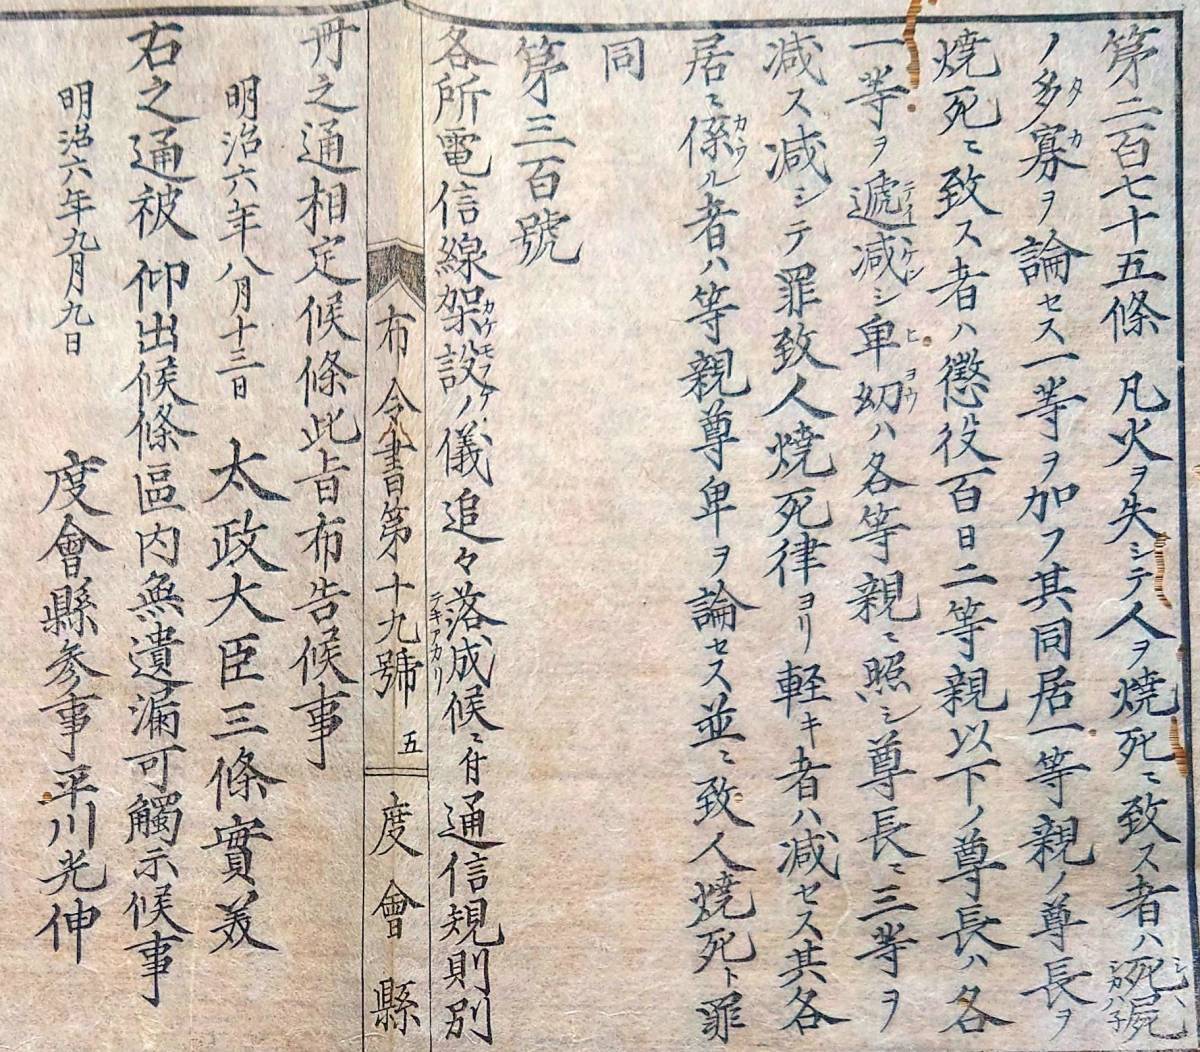 第二百七十五條　凡火ヲ失シテ人ヲ焼死ニ致ス者ハ死屍
ノ多寡ヲ論セス一等ヲ加フ其同居一等親ノ尊長ヲ
焼死ニ致ス者ハ懲役百日二等親以下ノ尊長ハ各
一等ヲ遞減シ卑幼ハ各等親ニ照シ尊長ニ三等ヲ
減ス減シテ罪致人焼死律ヨリ軽キ者ハ減セス其各
居ニ係ル者ハ等親尊卑ヲ論セス並ニ致人焼死ト罪
同
第三百號
各所電信線架設ノ儀追々落成候ニ付通信規則別
布令書第十九號　五　度會縣
冊之通相定候條此旨布告候事
明治六年八月十三日　太政大臣三條實美
右之通被　仰出候條區内無遺漏可觸示候事
明治六年九月九日　度會縣参事平川光伸